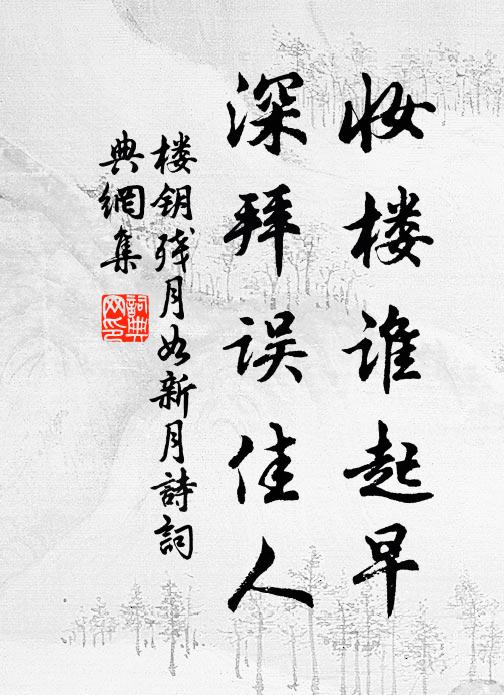 妆楼谁起早
深拜误佳人
楼钥残月如新月詩詞
典網集
詞典
网印